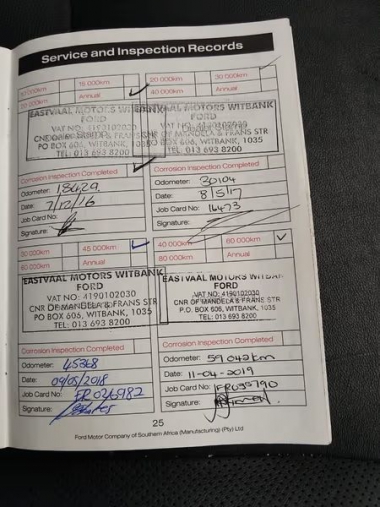 Service and Inspection Records
15 000km
20 000km
30 000km
Annual
40 000km
Annual
EASTVAAL MOTORS WITBANK
FORD
VAT NO: 4190102030
PO BOX 606, WITBANK, 1035
TEL: 013 693 8200
Corrosion Inspection Completed
Odometer: 18429
Date: 7/12/16
Job Card No:
Signature:
Corrosion Inspection Completed
Odometer: 30104
Date: 8/5/17
Job Card No: 16473
Signature:
45 000km
40 000km
60 000km
Annual
Annual
EASTVAAL MOTORS WITBANK
FORD
VAT NO: 4190102030
CNR OF MANDELA & FRANS STR
PO BOX 606, WITBANK, 1035
TEL: 013 693 8200
EASTVAAL MOTORS WITBANK
FORD
VAT NO: 4190102030
CNR OF MANDELA & FRANS STR
P.O. BOX 606, WITBANK, 1035
TEL: 013 693 8200
Corrosion Inspection Completed
Odometer: 45368
Date: 09/05/2018
Job Card No:
Signature:
Corrosion Inspection Completed
Odometer: 59042km
Date: 11-04-2019
Job Card No:
Signature:
25
Ford Motor Company of Southern Africa (Manufacturing) (Pty) Ltd